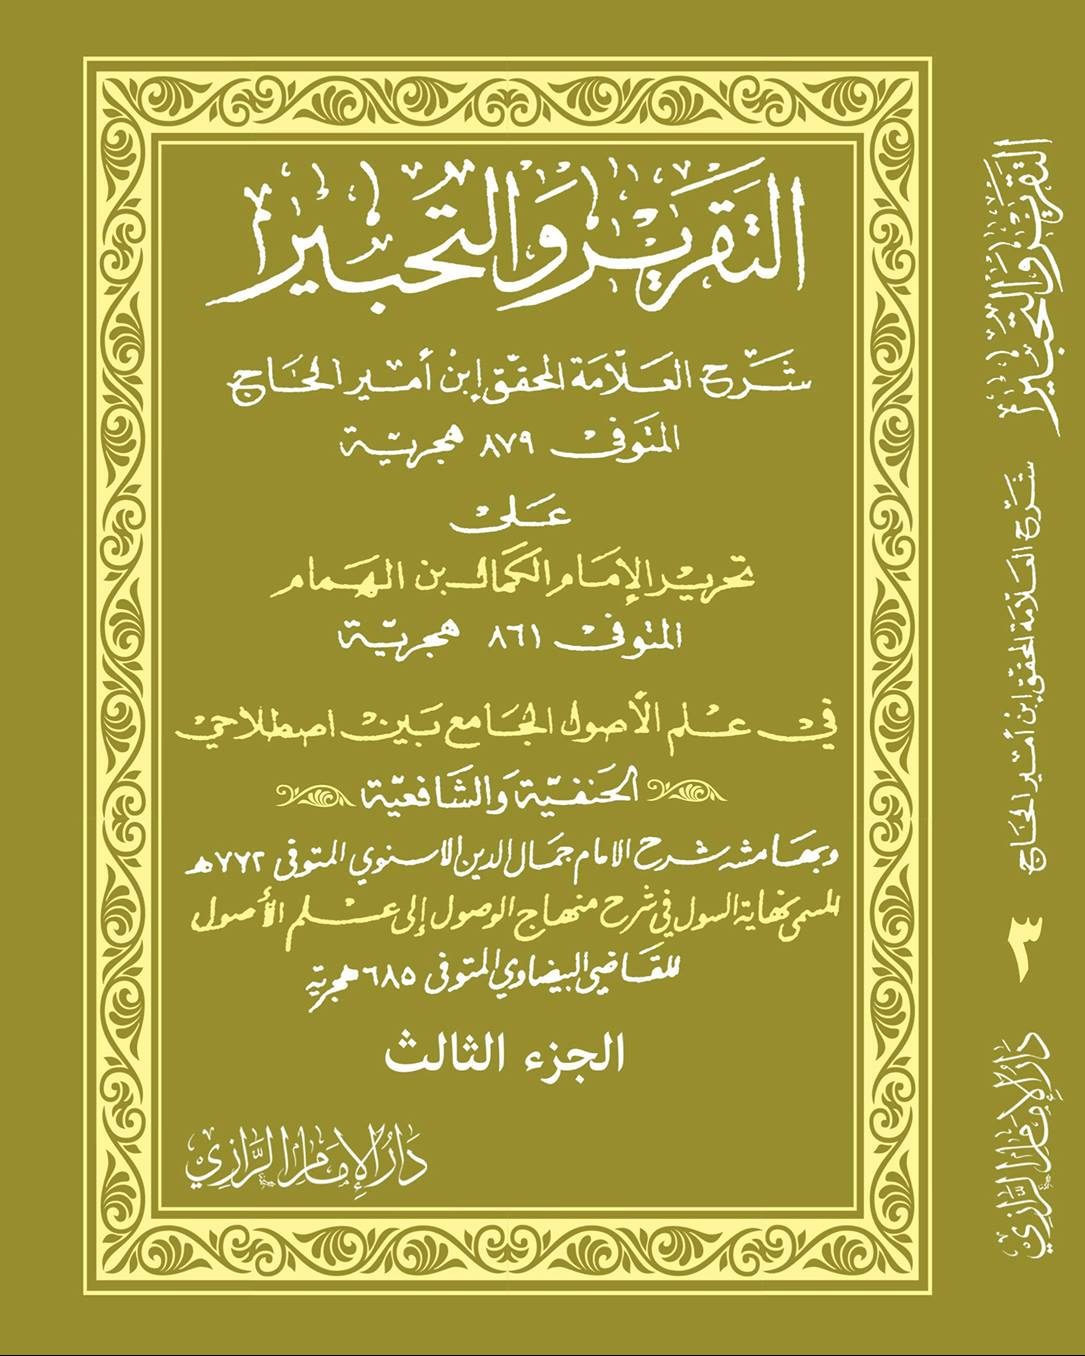 التقرير والتحبير
شرح العلامة المحقق إبن أمير الحاج
المتوفى ٨٧٩ هجرية
على
تحرير الإمام الكمال بن الهمام
المتوفى ٨٦١ هجرية
في علم الأصول الجامع بين اصطلاحي
الحنفية والشافعية
وبهامشه شرح الامام جمال الدين الاسنوي المتوفى ٧٧٢ هـ
المسمى نهاية السول في شرح منهاج الوصول إلى علم الأصول
للقاضي البيضاوي المتوفى ٦٨٥ هجرية
الجزء الثالث
دار الإمام الرازي
التقرير والتحبير
شرح العلامة المحقق إبن أمير الحاج
٣
دار الإمام الرازي